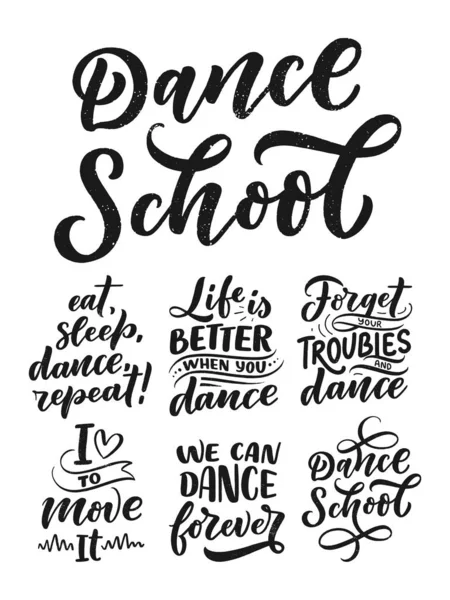 Dance
School
eat,
sleep,
dance,
repeat!
Life is
BETTER
WHEN YOU
dance
Forget
YOUR
TROUBLES
AND
dance
I
TO
move
It
WE CAN
DANCE
forever
Dance
School